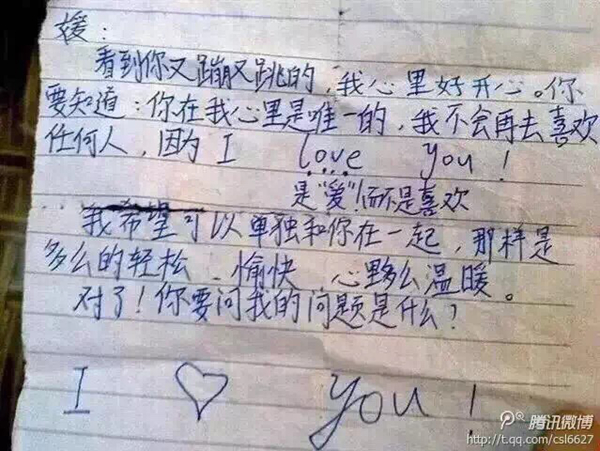 媛：
看到你又蹦又跳的，我心里好开心。你
要知道：你在我心里是唯一的，我不会再去喜欢
任何人，因为 I love you！
是“爱”！而不是喜欢
我希望可以单独和你在一起，那样是
多么的轻松、愉快、心里多么温暖。
对了！你要问我的问题是什么？
I ♡ you！
腾讯微博
http://t.qq.com/csl6627